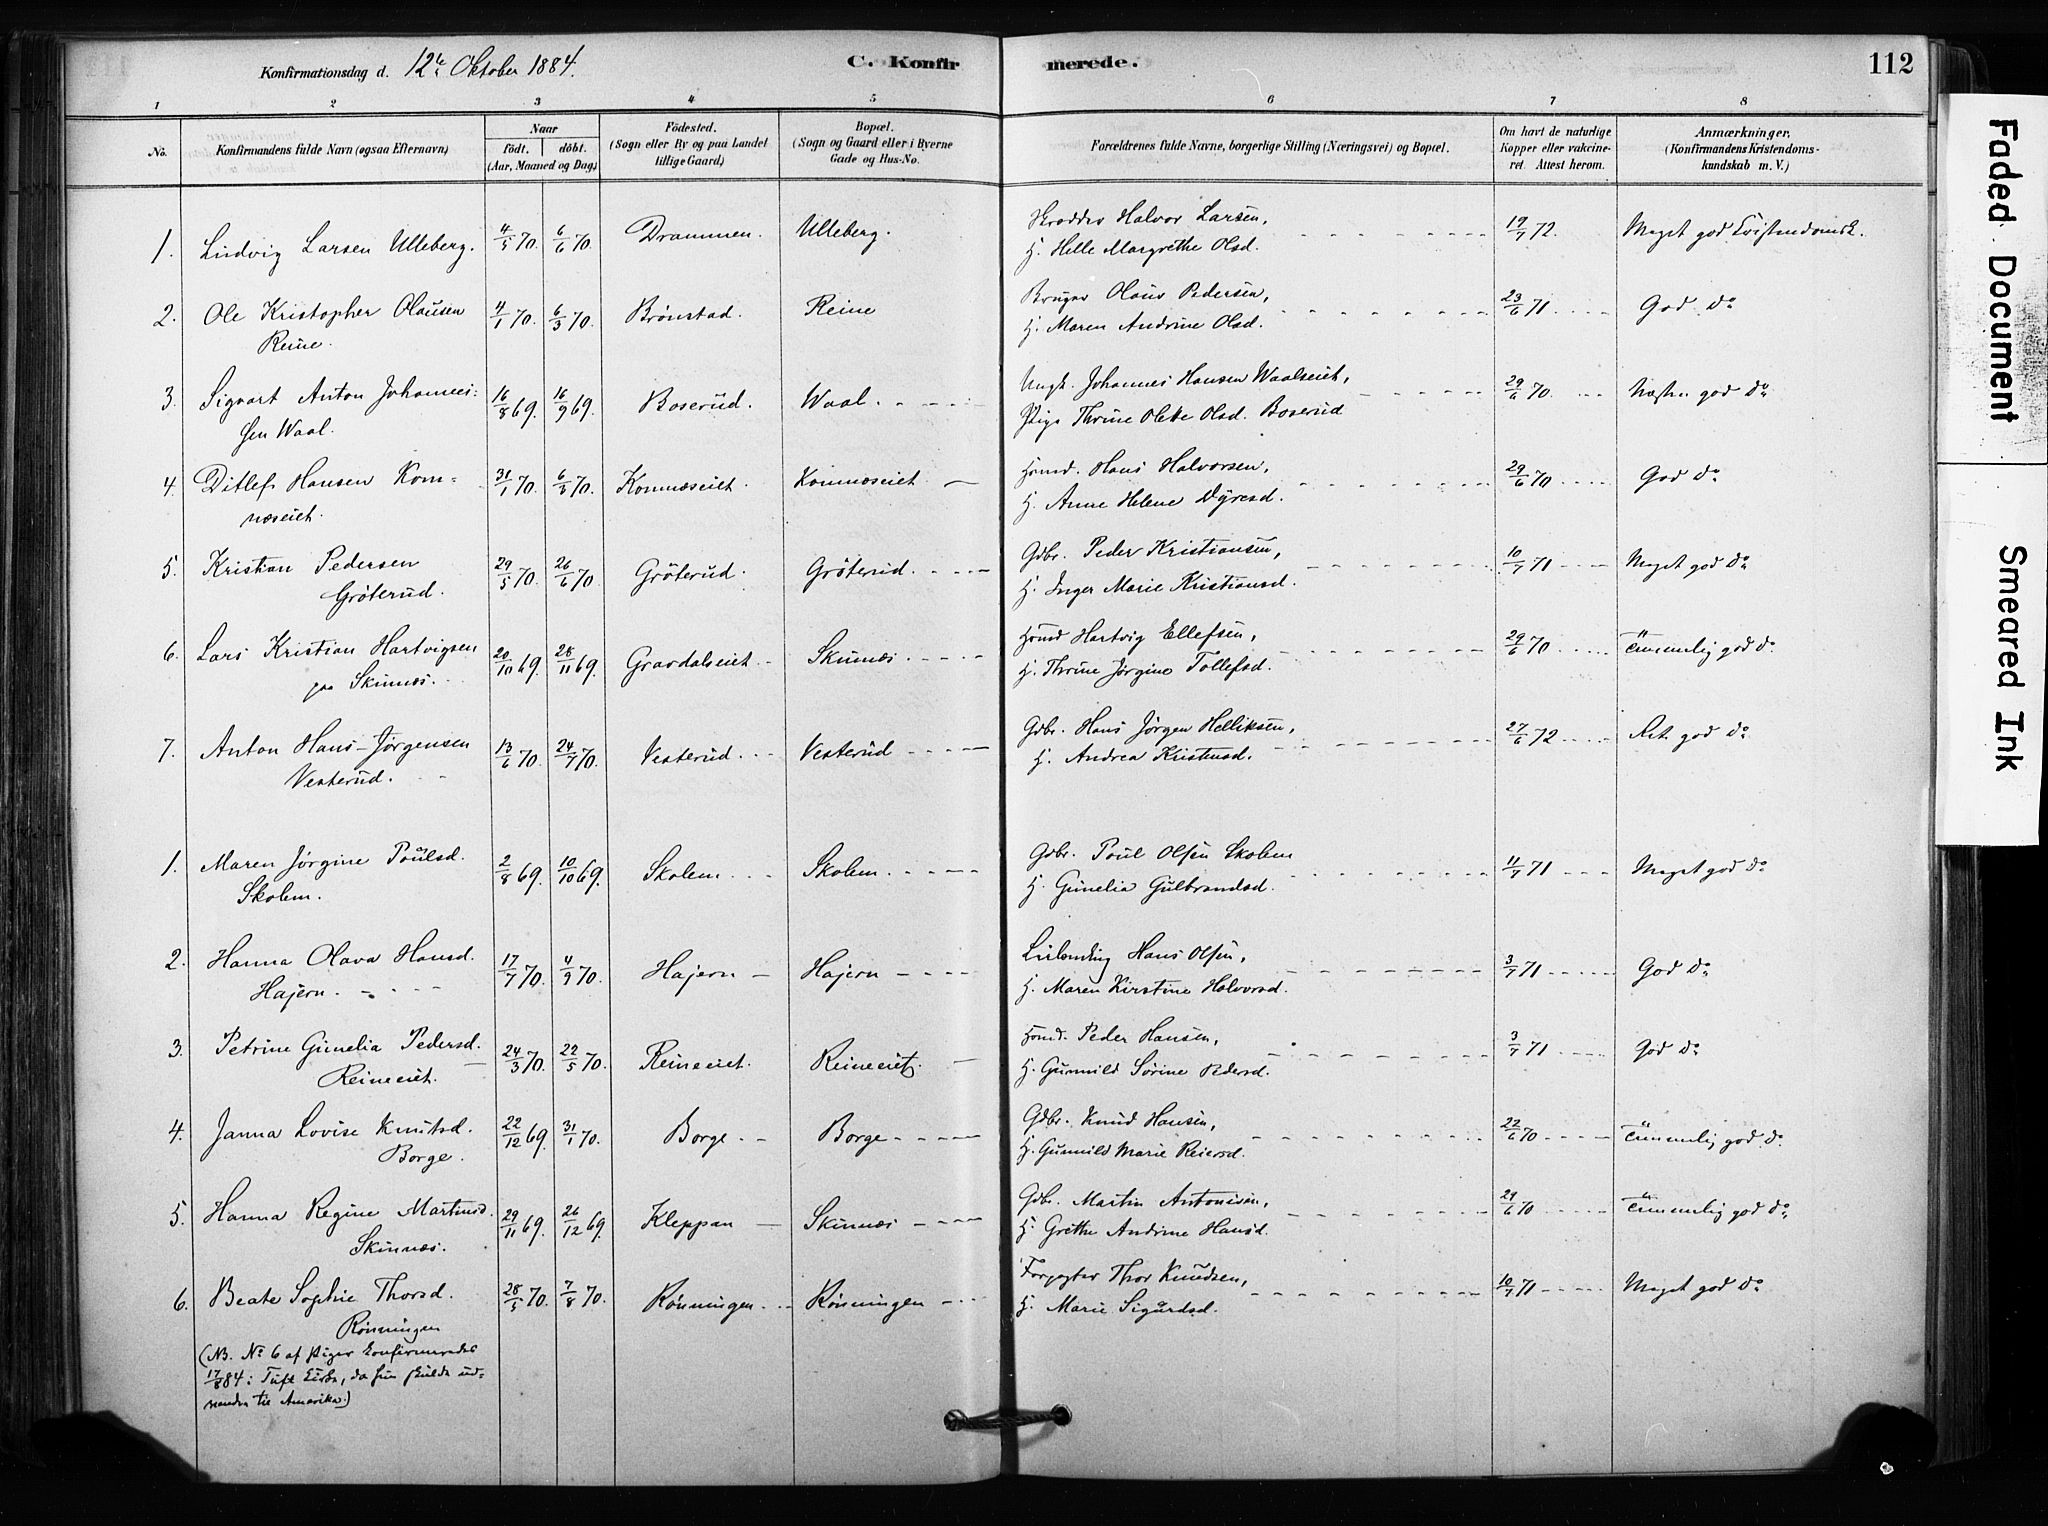 Konfirmationsdag d. 12te Oktober 1884.
C. Konfirmerede.
112
1 2 3 4 5 6 7 8
No.
Konfirmandens fulde Navn (ogsaa Efternavn)
Naar
födt. döbt.
(Aar, Maaned og Dag)
Födested.
(Sogn eller By og paa Landet
tillige Gaard)
Bopæl.
(Sogn og Gaard eller i Byerne
Gade og Hus-No.
Forældrenes fulde Navne, borgerlige Stilling (Næringsvei) og Bopæl.
Om havt de naturlige
Kopper eller vakcine-
ret. Attest herom.
Anmærkninger.
(Konfirmandens Kristendoms-
kundskab m. V.)
1. Ludvig Larsen Ulleberg. 4/5 70. 6/6 70. Drammen. Ulleberg. Skrædder Halvor Larsen, 19/7 72. Meget god Kristendomsk.
H. Helle Margrethe Olsd.
2. Ole Kristopher Olausen 4/1 70. 6/3 70. Brönstad. Reine Bruger Olaus Pedersen, 23/6 71 God do
Reine. H. Maren Andrine Olsd.
3. Sigvart Anton Johannes- 16/8 69. 16/9 69. Boserud. Waal. Ungk. Johannes Hansen Waalseiet, 29/6 70. Næsten god do
sen Waal. Pige Thrine Olette Olsd. Boserud
4. Ditlef Hansen Kom- 31/1 70. 6/3 70. Komnæseiet. Komnæseiet Hømd. Hans Halvorsen, 29/6 70 God do
næseiet. H. Anne Helene Dyresd.
5. Kristian Pedersen 29/5 70. 26/6 70. Gröterud. Gröterud. Gdbr. Peder Kristiansen, 10/7 71 Meget god do
Gröterud. H. Inger Marie Kristiansd.
6. Lars Kristian Hartvigsen 20/10 69. 28/11 69. Gravdalseiet Skinnæs. Hømd Hartvig Ellefsen, 29/6 70 Temmelig god do
paa Skinnæs. H. Thrine Jörgine Tollefsd.
7. Anton Hans-Jörgensen 13/6 70. 24/7 70. Vesterud. Vesterud Gdbr. Hans Jörgen Helliksen, 27/6 72 Ret god do
Vesterud. H. Andrea Kristensd.
1. Maren Jörgine Poulsd. 2/8 69. 10/10 69. Skolem. Skolem. Gdbr. Poul Olsen Skolem 11/7 71 Meget god do
Skolem. H. Gunelia Gulbrandsd.
2. Hanna Olava Hansd. 17/7 70. 4/9 70. Hajern Hajern Hans Olsen, 3/7 71 God do
Hajern. H. Maren Kirstine Halvorsd.
3. Petrine Gunelia Pedersd. 24/3 70. 22/5 70. Reineeiet. Reineeiet. Hømd. Peder Hansen, 3/7 71 God do
Reineeiet. H. Gunnild Sörine Pedersd.
4. Janna Lovise Knutsd. 22/12 69. 31/1 70. Borge Borge Gdbr. Knud Hansen, 22/6 70 Temmelig god do
Borge. H. Gunnild Marie Reiersd.
5. Hanna Regine Martinsd. 29/11 69. 26/12 69. Kleppan Skinnæs Gdbr. Martin Antonisen, 29/6 70 Temmelig god do
Skinnæs. H. Grethe Andrine Hansd.
6. Beate Sophie Thorsd. 28/5 70. 7/8 70. Rönningen Rönningen Forpagter Thor Knudsen, 10/7 71 Meget god do
Rönningen H. Marie Sigurdsd.
(NB. No 6 af Piger konfirmeredes
17/8 84 i Tuft Kirke, da hun skulde ud-
vandre til Amerika.)
Faded Document
Smeared Ink